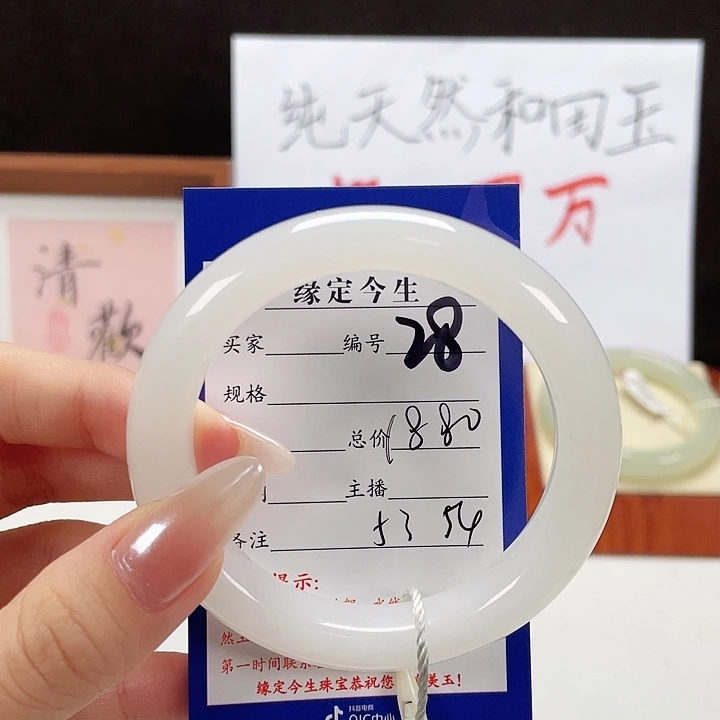 纯天然和田玉
万
清
欢
缘定今生
买家 编号 28
规格
总价 1880
主播
备注 53 54
提示:
第一时间联系
缘定今生珠宝恭祝您 美玉!
抖音电商
QIC中心